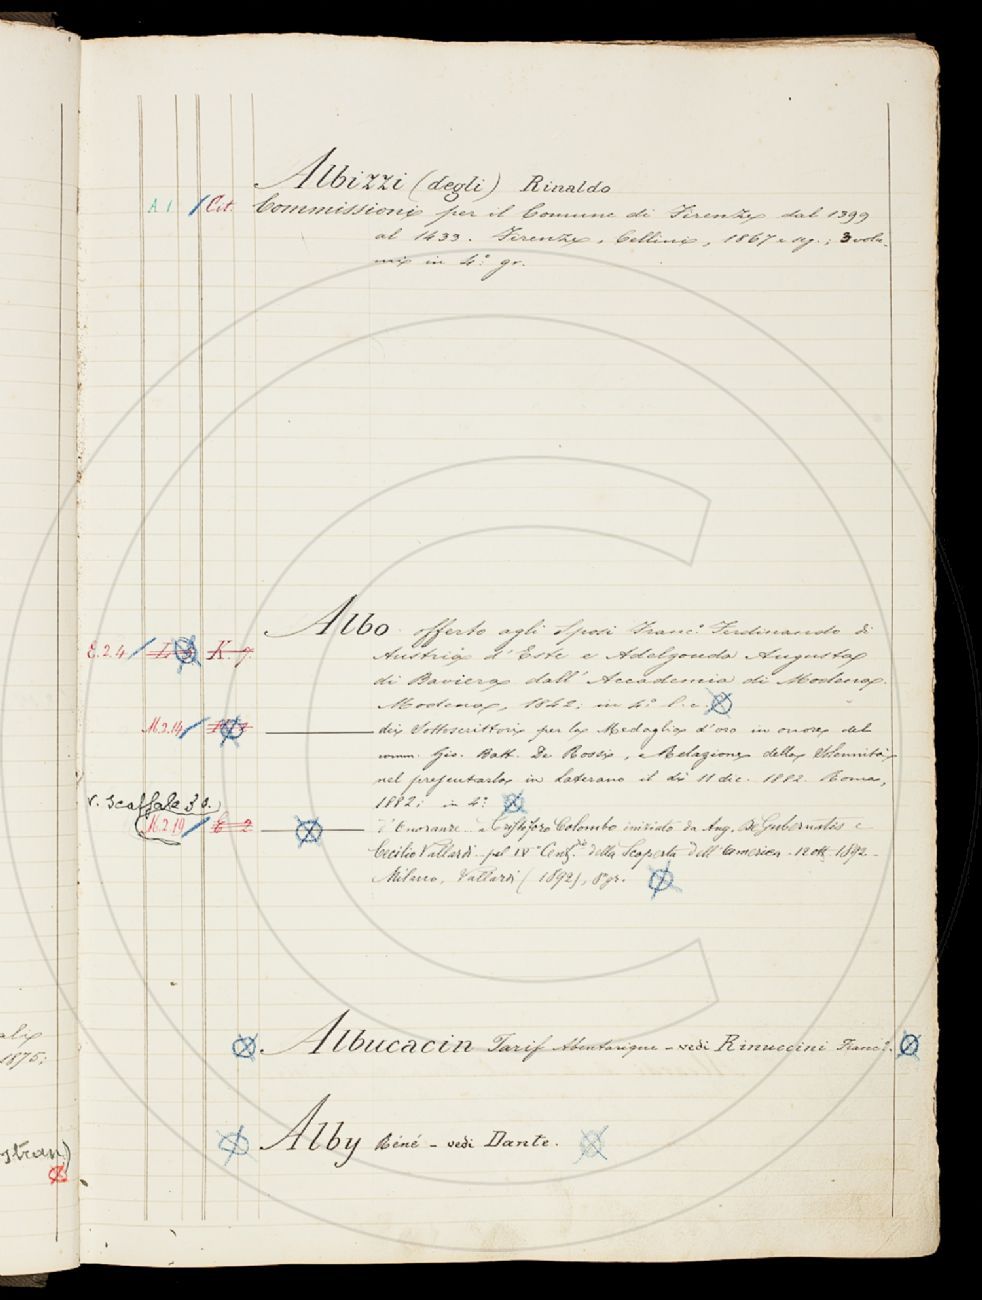 Albizzi (degli) Rinaldo
A. 1 Cit. Commissioni per il Comune di Firenze dal 1399
al 1433. Firenze, Cellini, 1867 e sg.; 3 volu-
mi in 4.° gr.
Albo offerto agli Sposi Franc.° Ferdinando di
E.2.4 K. 7. Austria d'Este e Adelgonda Augusta
di Baviera dall'Accademia di Modena.
Modena, 1842; in 4.°
M.2.14 dei Sottoscrittori per la Medaglia d'oro in onore del
comm. Gio. Batt. De Rossi, e Relazione della Solennità
nel presentarla in Laterano il dì 11 dic. 1882. Roma,
1882; in 4.°
V. Scaffale 30.
M.2.19 E 2 d'Onoranze a Cristoforo Colombo iniziato da Ang. De Gubernatis e
Cecilio Vallardi pel IV° Cent.° della Scoperta dell'America - 12 ott. 1892 -
Milano, Vallardi (1892), 8° gr.
Albucacin Tarif Abentarique - vedi Rinuccini Franc.°.
Alby Réné - vedi Dante.
1875;